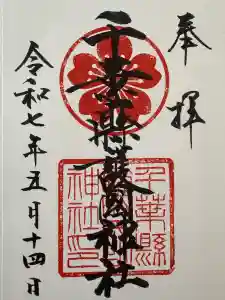 奉拝
千葉縣護國神社
千葉縣護國神社印
令和七年五月十四日